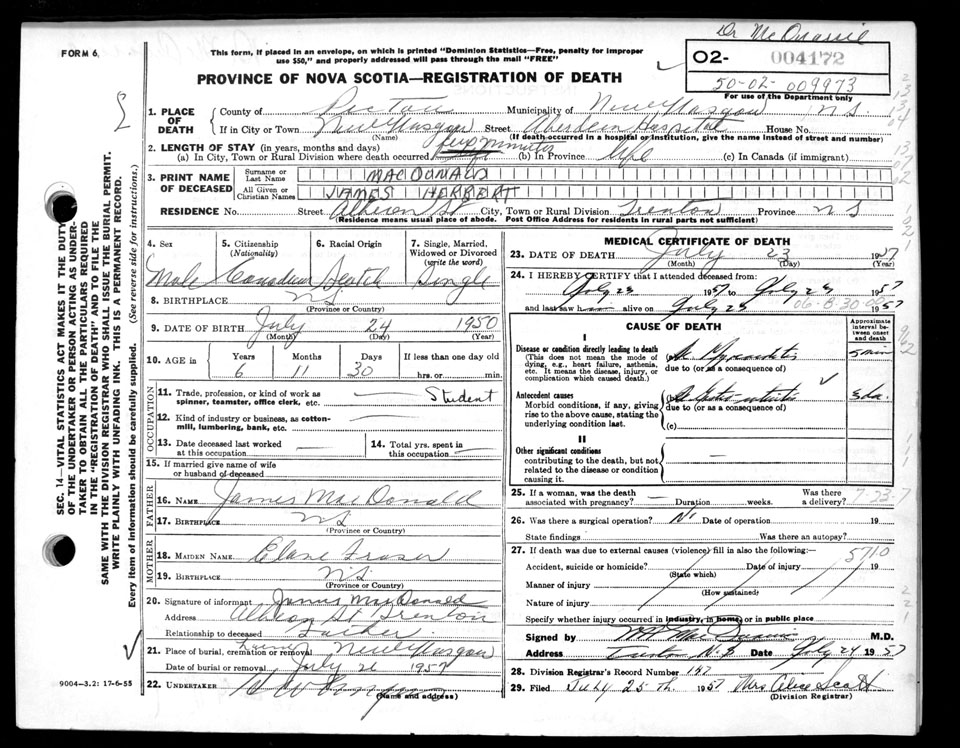 Dr
FORM 6.
This form, if placed in an envelope, on which is printed "Dominion Statistics—Free, penalty for improper
use $50," and properly addressed will pass through the mail "FREE"
PROVINCE OF NOVA SCOTIA—REGISTRATION OF DEATH
02- 004172
50-02-009973
For use of the Department only
SEC. 14—VITAL STATISTICS ACT MAKES IT THE DUTY
OF THE UNDERTAKER OR PERSON ACTING AS UNDER-
TAKER TO OBTAIN ALL THE PARTICULARS REQUIRED
IN THE "REGISTRATION OF DEATH" AND TO FILE THE
SAME WITH THE DIVISION REGISTRAR WHO SHALL ISSUE THE BURIAL PERMIT.
WRITE PLAINLY WITH UNFADING INK. THIS IS A PERMANENT RECORD.
Every item of information should be carefully supplied. (See reverse side for instructions.)
1. PLACE OF DEATH
County of Pictou Municipality of New Glasgow N.S.
If in City or Town New Glasgow Street Aberdeen Hospital House No.
(Name) (If death occurred in a hospital or institution, give the name instead of street and number)
2. LENGTH OF STAY (in years, months and days)
(a) In City, Town or Rural Division where death occurred few minutes (b) In Province life (c) In Canada (if immigrant)
3. PRINT NAME OF DECEASED
Surname or Last Name MACDONALD
All Given or Christian Names JAMES HERBERT
RESIDENCE No. Street St City, Town or Rural Division Trenton Province NS
(Residence means usual place of abode. Post Office Address for residents in rural parts not sufficient)
4. Sex 5. Citizenship (Nationality) 6. Racial Origin 7. Single, Married, Widowed or Divorced (write the word)
Male Canadian Scotch Single
8. BIRTHPLACE NS
(Province or Country)
9. DATE OF BIRTH July 24 1950
(Month) (Day) (Year)
10. AGE in Years Months Days If less than one day old
6 11 30 hrs. or min.
OCCUPATION
11. Trade, profession, or kind of work as spinner, teamster, office clerk, etc. Student
12. Kind of industry or business, as cotton-mill, lumbering, bank, etc.
13. Date deceased last worked at this occupation
14. Total yrs. spent in this occupation
15. If married give name of wife or husband of deceased
FATHER
16. NAME James MacDonald
17. BIRTHPLACE NS
(Province or Country)
MOTHER
18. MAIDEN NAME Fraser
19. BIRTHPLACE NS
(Province or Country)
20. Signature of informant James MacDonald
Address Albion St Trenton
Relationship to deceased Father
21. Place of burial, cremation or removal New Glasgow
Date of burial or removal July 1957
22. UNDERTAKER
(Name and address)
9004-3.2: 17-6-55
MEDICAL CERTIFICATE OF DEATH
23. DATE OF DEATH July 23 1957
(Month) (Day) (Year)
24. I HEREBY CERTIFY that I attended deceased from:
July 23 1957 to July 23 1957
and last saw h alive on July 23 1957
CAUSE OF DEATH
Approximate interval between onset and death
I
Disease or condition directly leading to death
(This does not mean the mode of dying, e.g., heart failure, asthenia, etc. It means the disease, injury, or complication which caused death.)
(a) Myocarditis 5 min
due to (or as a consequence of)
Antecedent causes
Morbid conditions, if any, giving rise to the above cause, stating the underlying condition last.
(b) 3 da.
due to (or as a consequence of)
(c)
II
Other significant conditions
contributing to the death, but not related to the disease or condition causing it.
25. If a woman, was the death associated with pregnancy? Duration weeks. Was there a delivery?
7-23-7
26. Was there a surgical operation? No Date of operation 19
State findings Was there an autopsy?
27. If death was due to external causes (violence) fill in also the following:—
5710
Accident, suicide or homicide? Date of injury 19
(State which)
Manner of injury
(How sustained)
Nature of injury
Specify whether injury occurred in industry, in home, or in public place
Signed by M.D.
Address Trenton N.S Date July 24 1957
28. Division Registrar's Record Number 147
29. Filed July 25th. 1957 Mrs Alice Scott
(Division Registrar)